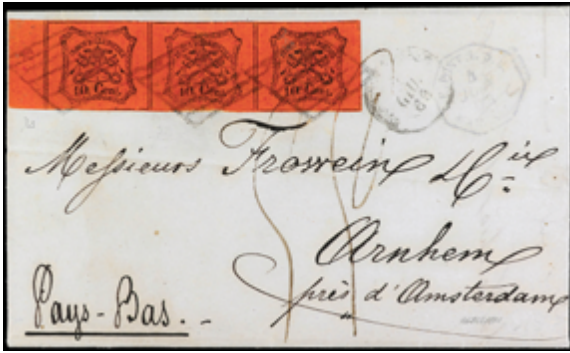 10 Cent. 10 Cent. 10 Cent.
GIU.
Messieurs Frowein & Cie
Arnhem
près d'Amsterdam
Pays-Bas.